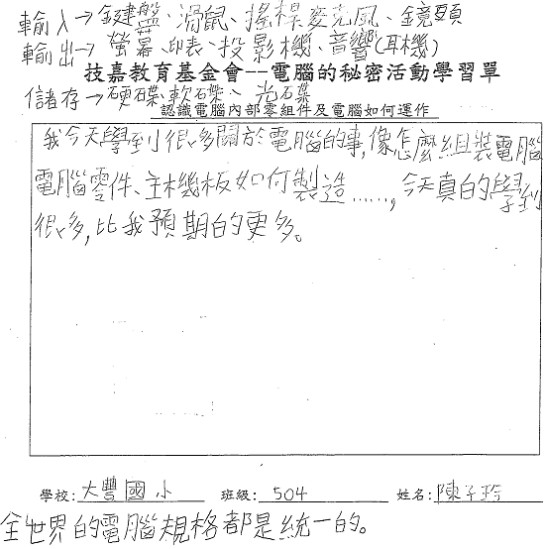 輸入→鍵盤、滑鼠、搖桿麥克風、鏡頭
輸出→螢幕、印表、投影機、音響(耳機)
技嘉教育基金會--電腦的秘密活動學習單
儲存→硬碟、軟碟、光碟
認識電腦內部零組件及電腦如何運作
我今天學到很多關於電腦的事,像怎麼組裝電腦
電腦零件、主機板如何製造……,今天真的學到
很多,比我預期的更多。
學校:大豐國小 班級:504 姓名:陳子玲
全世界的電腦規格都是統一的。